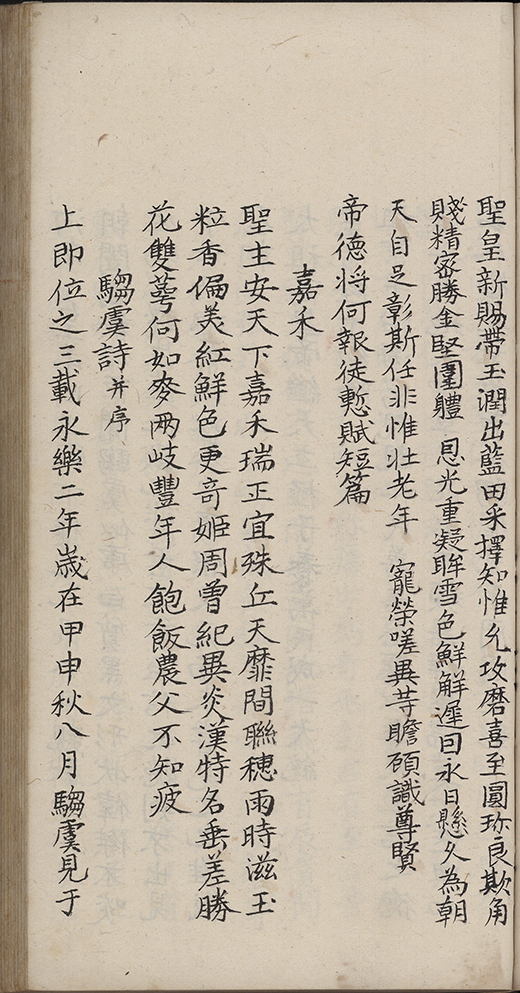 聖皇新賜帶玉潤出藍田采擇知惟允攻磨喜至圓珎良欺角
賤精密勝金堅圍軆 恩光重凝眸雪色鮮解遲囙永日懸久為朝
天自足彰斯任非惟壮老年 寵榮嗟異䒭瞻碩識尊賢
帝德将何報徒慙賦短篇
嘉禾
聖主安天下嘉禾瑞正宜殊丘天靡間聯穂雨時滋玉
粒香偏美紅鮮色更竒姬周曾紀異炎漢特名垂差勝
花雙萼何如麥兩岐豐年人飽飯農父不知疲
騶虞詩并序
上即位之三載永樂二年歲在甲申秋八月騶虞見于